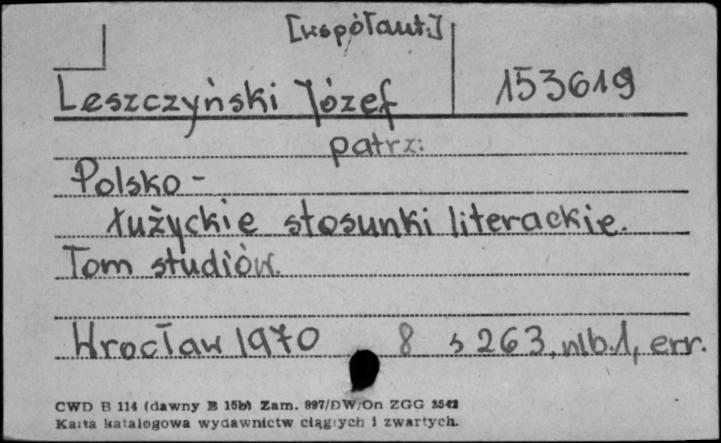 [współaut.]
Leszczyński Józef 153619
patrz:
Polsko-
łużyckie stosunki literackie.
Tom studiów.
Wrocław 1970 8 s 263, nlb. 1, err.
CWD B 114 (dawny B 15b) Zam. 997/DW/On ZGG 2542
Karta katalogowa wydawnictw ciągłych i zwartych.